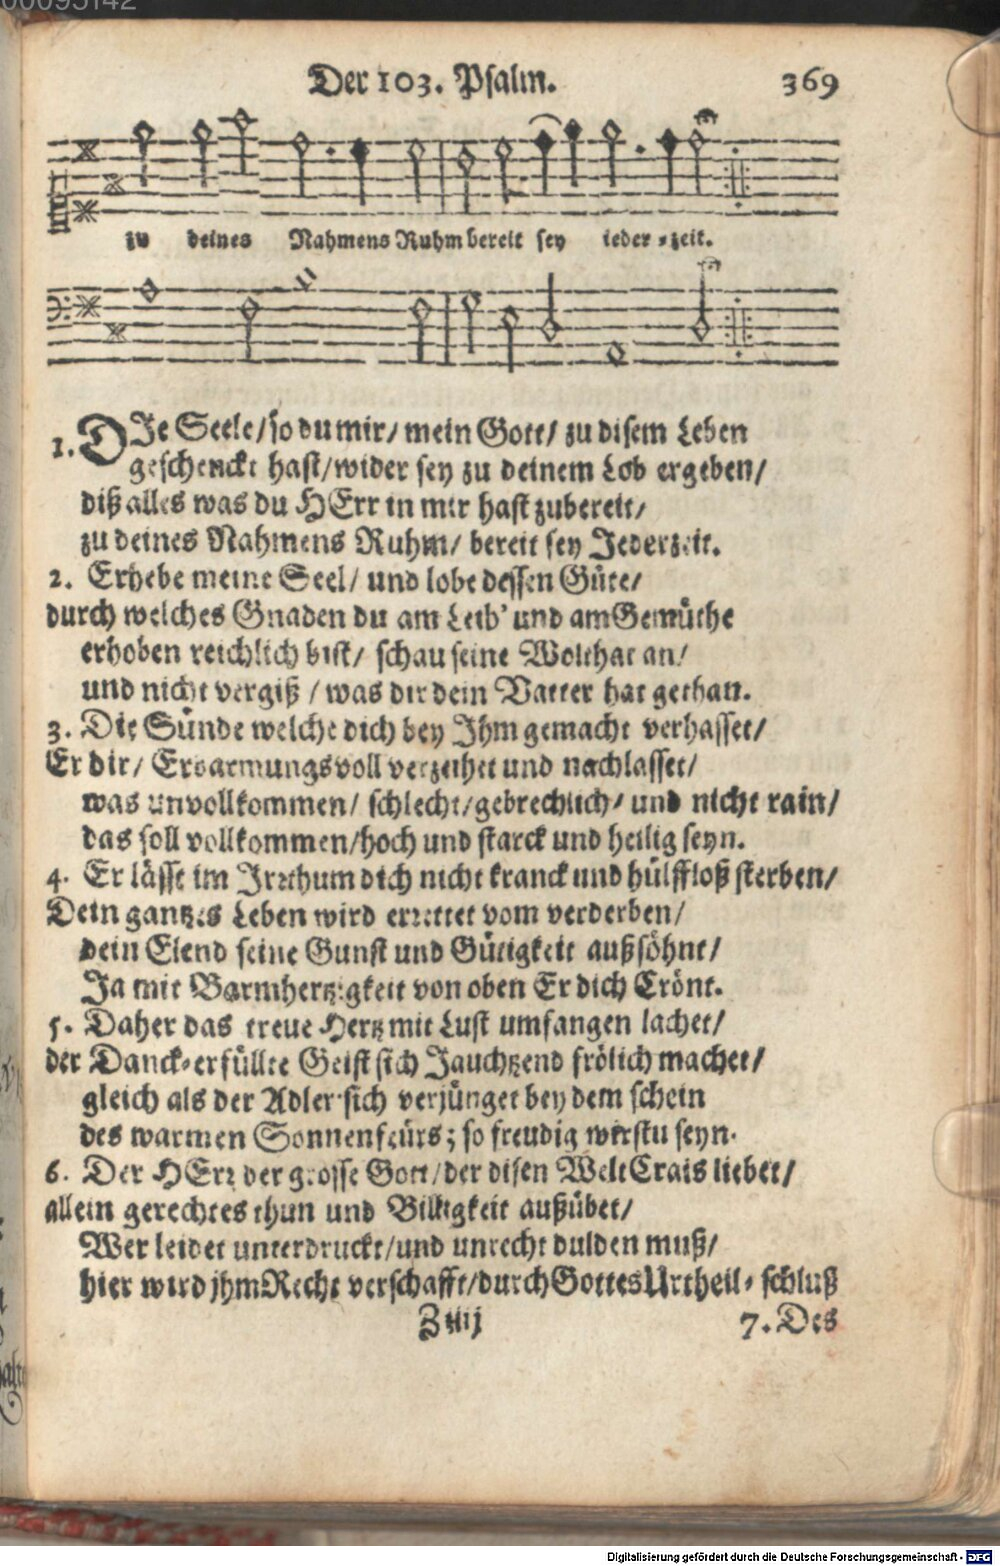 00095142
Der 103. Psalm. 369
zu deines Nahmens Ruhm bereit sey ieder-zeit.
1. DJe Seele/so du mir/ mein Gott/ zu disem Leben
geschenckt hast/wider sey zu deinem Lob ergeben/
diß alles was du HErr in mir hast zubereit/
zu deines Nahmens Ruhm/ bereit sey Jederzeit.
2. Erhebe meine Seel/ und lobe dessen Güte/
durch welches Gnaden du am Leib' und am Gemüthe
erhoben reichlich bist/ schau seine Wolthat an/
und nicht vergiß / was dir dein Vatter hat gethan.
3. Die Sünde welche dich bey Jhm gemacht verhasset/
Er dir/ Erbarmungsvoll verzeihet und nachlasset/
was unvollkommen/ schlecht/gebrechlich/ und nicht rain/
das soll vollkommen/hoch und starck und heilig seyn.
4. Er lässt im Jrrthum dich nicht kranck und hülffloß sterben/
Dein gantzes Leben wird errettet vom verderben/
dein Elend seine Gunst und Gütigkeit außsöhnt/
Ja mit Barmhertzigkeit von oben Er dich Crönt.
5. Daher das treue Hertz mit Lust umfangen lachet/
der Danck-erfüllte Geist sich Jauchtzend frölich machet/
gleich als der Adler sich verjünget bey dem schein
des warmen Sonnenfeürs; so freudig wirstu seyn.
6. Der HErr der grosse Gott/der disen WeltCrais liebet/
allein gerechtes thun und Billigkeit außübet/
Wer leidet unterdruckt/und unrecht dulden muß/
hier wird jhm Recht verschafft/durch Gottes Urtheil-schluß
7. Des
Digitalisierung gefördert durch die Deutsche Forschungsgemeinschaft - DFG